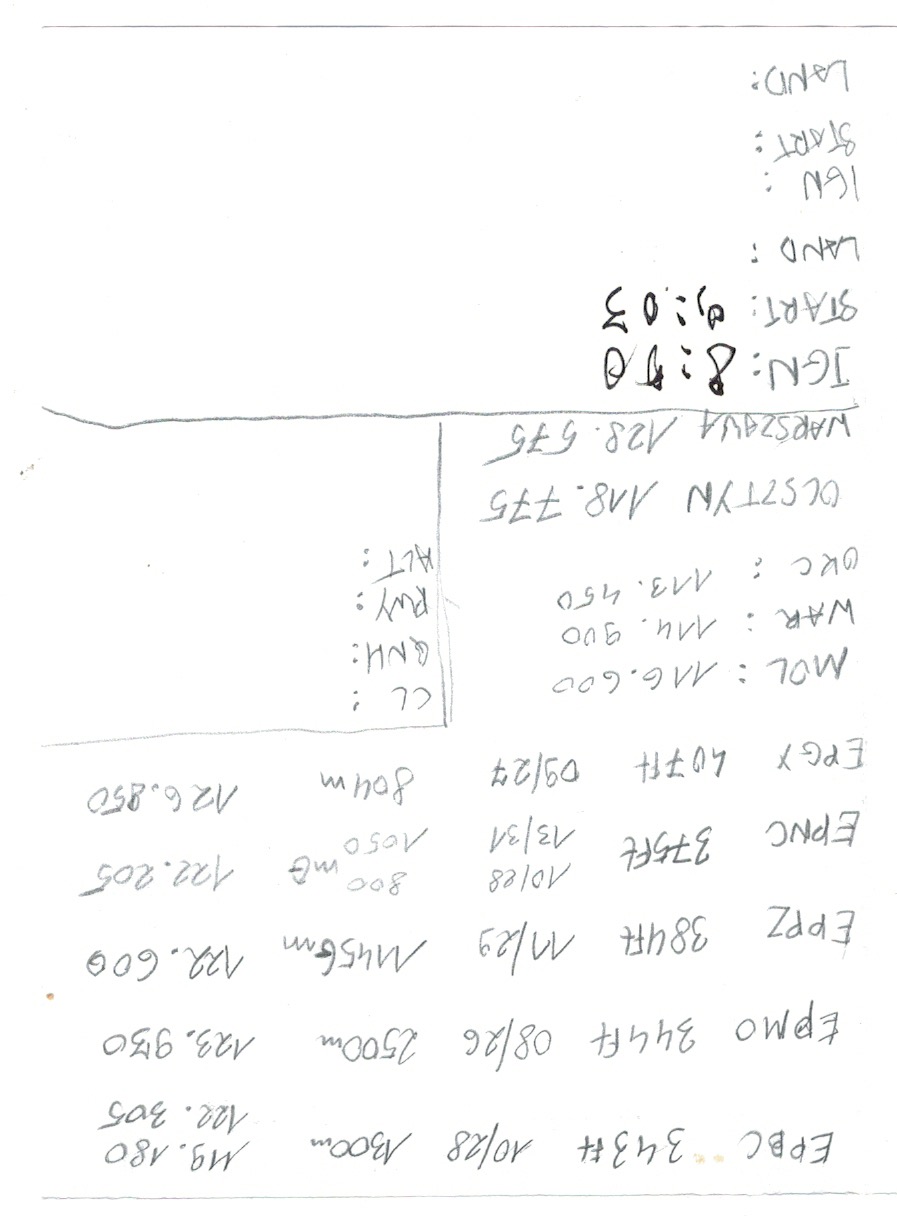 EPBC 343ft 10/28 1300m 119.180
122.305
EPMO 344ft 08/26 2500m 123.930
EPPZ 384ft 11/29 1145Gm 122.600
EPNC 375ft 10/28 800 mG 122.205
13/31 1050
EPGY 407ft 09/27 804m 126.850
MOL : 116.600
WAR : 114.900
OKC : 113.450
CL :
QNH:
RWY:
ALT:
OLSZTYN 118.775
WARSZAWA 128.575
IGN:
START: 9:03
LAND :
IGN :
START:
LAND: